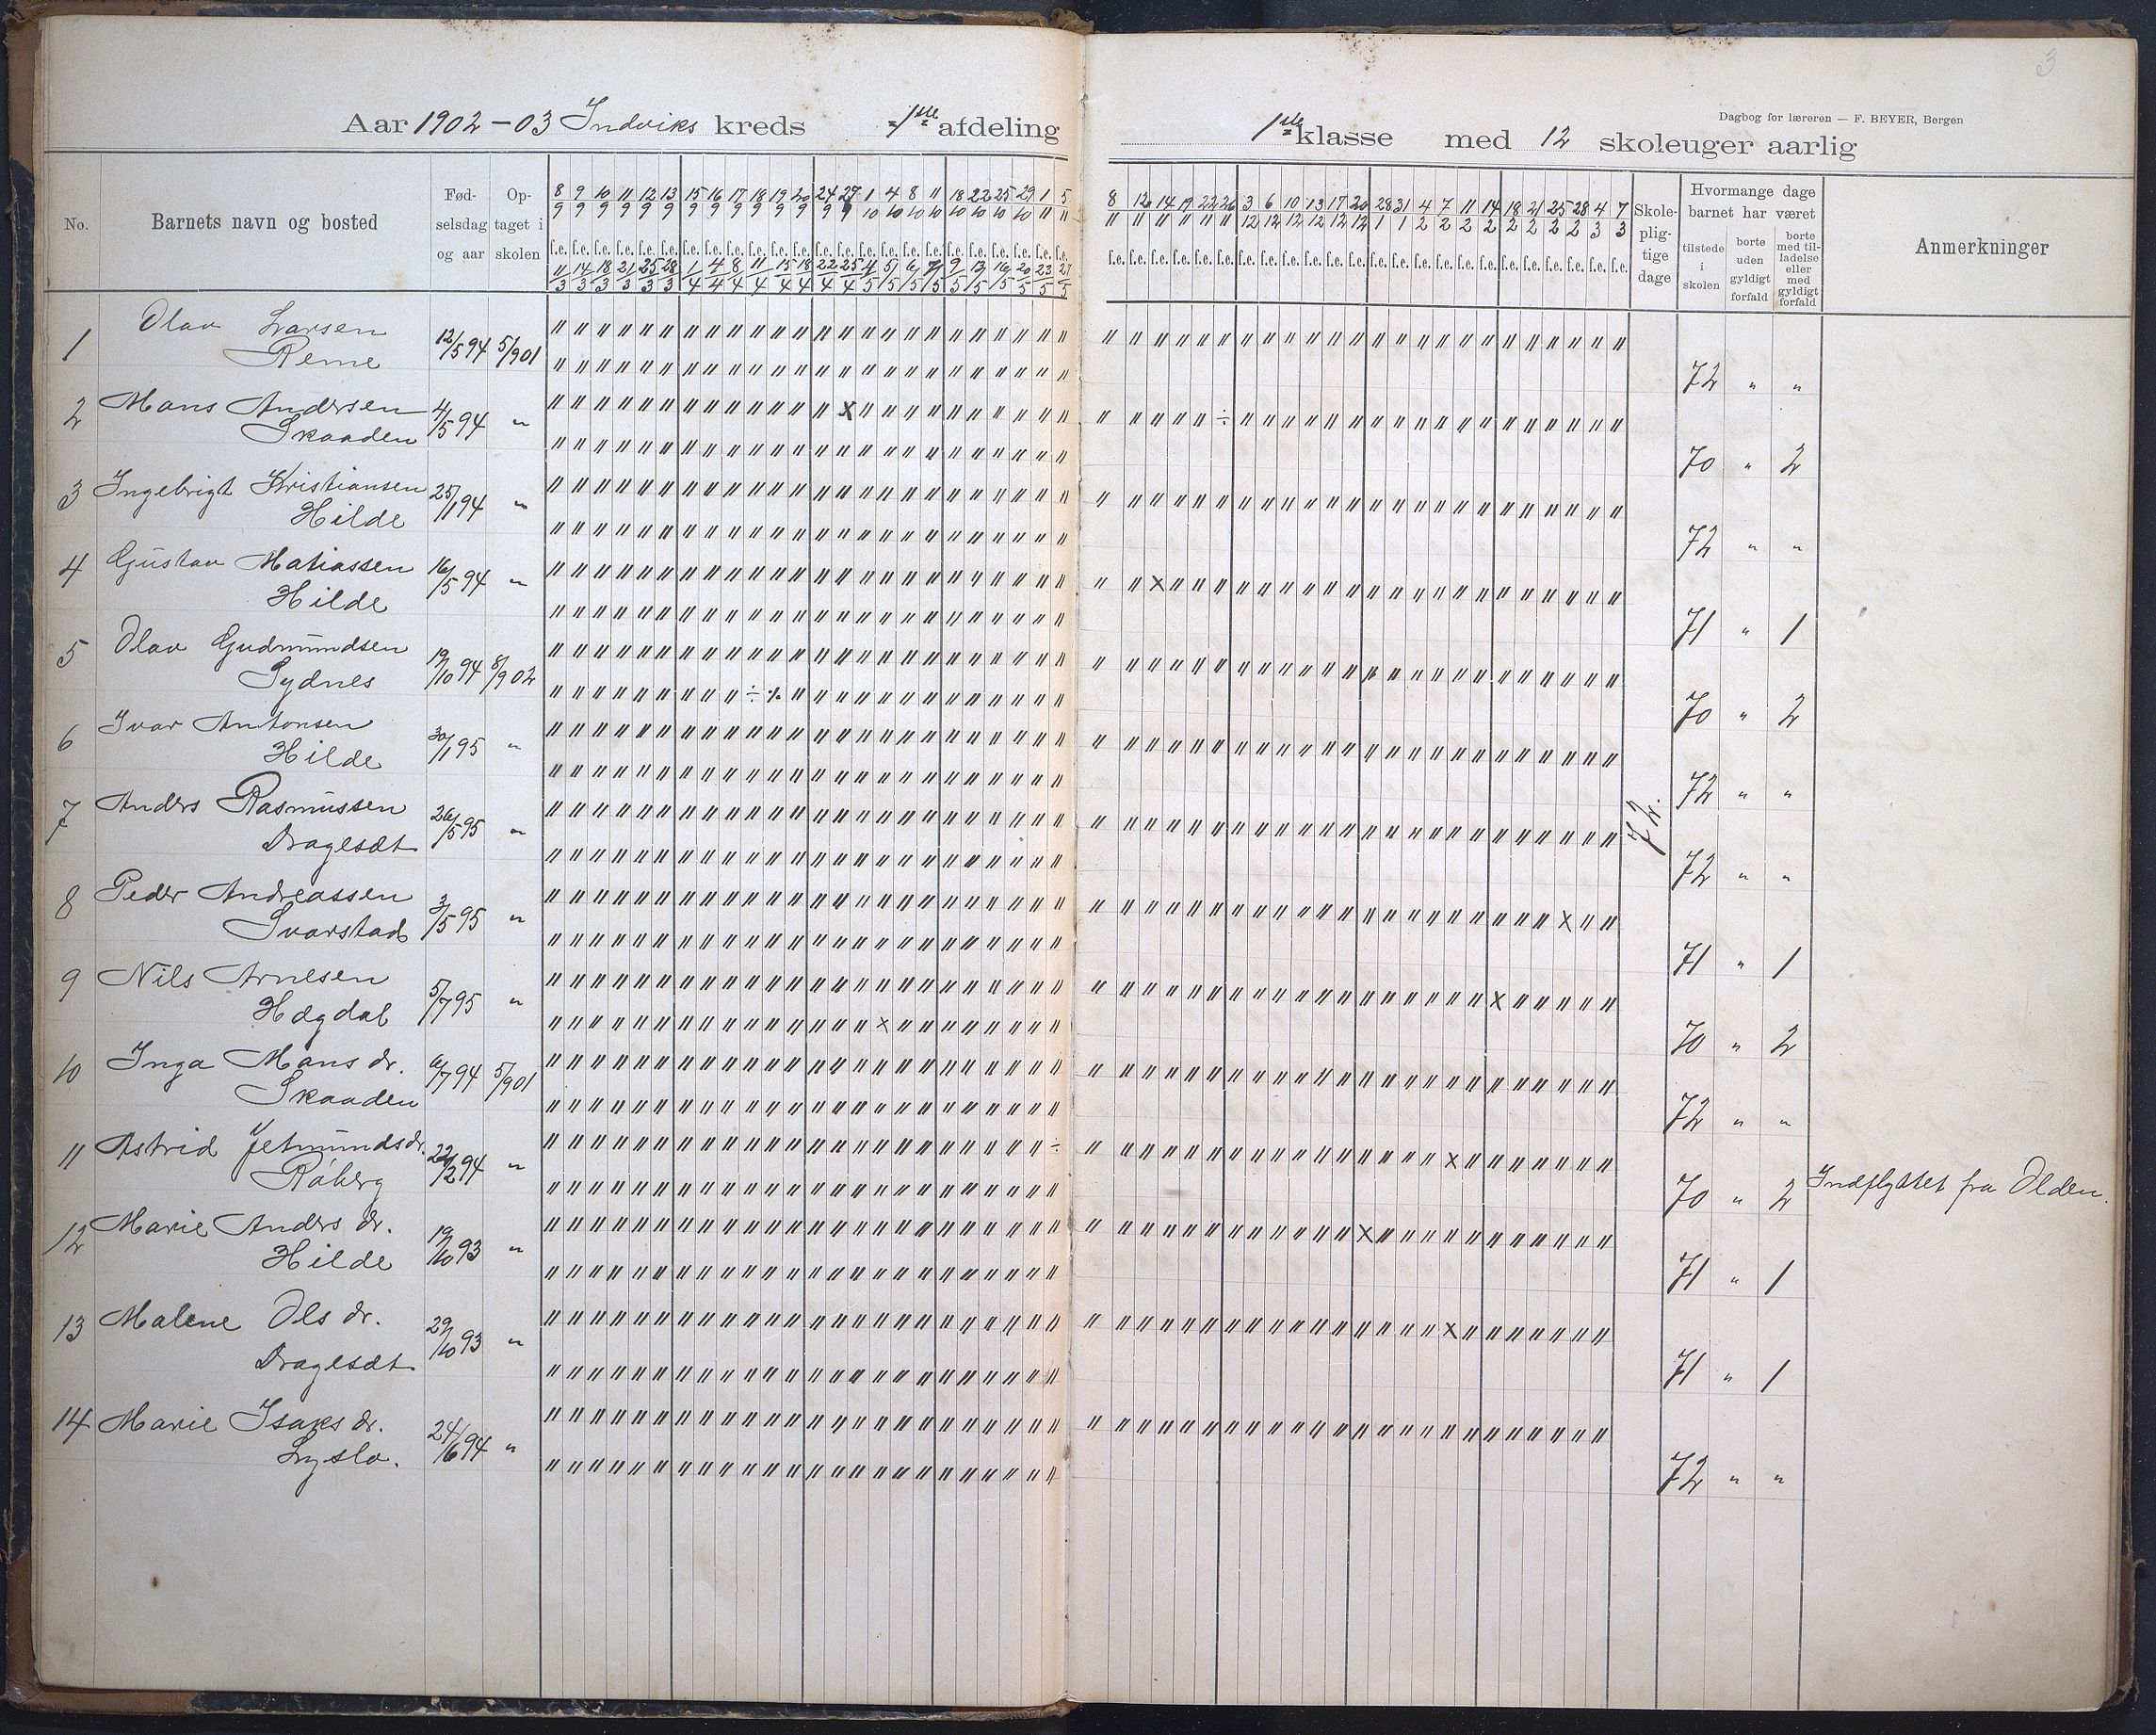 3
Dagbog for læreren — F. BEYER, Bergen
Aar 1902-03 Indviks kreds 1ste afdeling 1ste klasse med 12 skoleuger aarlig
No. Barnets navn og bosted Fødselsdag og aar Optaget i skolen Skolepligtige dage Hvormange dage barnet har været Anmerkninger
tilstede i skolen borte uden gyldigt forfald borte med tilladelse eller med gyldigt forfald
8/9 9/9 10/9 11/9 12/9 13/9 15/9 16/9 17/9 18/9 19/9 20/9 24/9 27/9 1/10 4/10 8/10 11/10 18/10 22/10 25/10 29/10 1/11 5/11 8/11 12/11 14/11 19/11 22/11 26/11 3/12 6/12 10/12 13/12 17/12 20/12 28/1 31/1 4/2 7/2 11/2 14/2 18/2 21/2 25/2 28/2 4/3 7/3
11/3 14/3 18/3 21/3 25/3 28/3 1/4 4/4 8/4 11/4 15/4 18/4 22/4 25/4 4/5 5/5 6/5 7/5 9/5 13/5 16/5 20/5 23/5 27/5
1 Olav Larsen
Reme 12/5 94 5/9 01 72 " "
2 Mons Andersen
Skaaden 4/5 94 " 70 " 2
3 Ingebrigt Kristiansen
Hilde 25/1 94 " 72 " "
4 Gustav Matiassen
Hilde 16/5 94 " 71 " 1
5 Olav Gudmundsen
Sydnes 19/10 94 8/9 02 70 " 2
6 Ivar Antonsen
Hilde 30/1 95 " 72 " "
72.
7 Anders Rasmussen
Dragesæt 26/5 95 " 72 " "
8 Peder Andreassen
Svarstad 3/5 95 " 71 " 1
9 Nils Arnesen
Hægdal 5/7 95 " 70 " 2
10 Inga Mons dr.
Skaaden 6/7 94 5/9 01 72 " "
11 Astrid Jetmundsdr.
Røberg 22/2 94 " 70 " 2 Indflyttet fra Olden.
12 Marie Anders dr.
Hilde 19/10 93 " 71 " 1
13 Malene Ols dr.
Dragesæt 29/10 93 " 71 " 1
14 Marie Isaks dr.
Lyslo. 24/6 94 " 72 " "